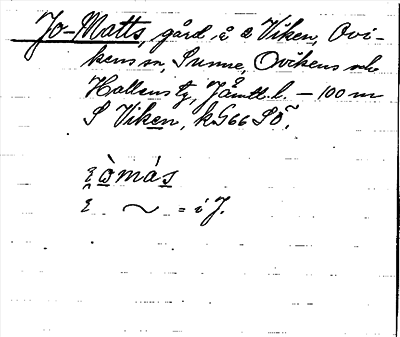 Jo-Matts, gård, å Viken, Ovi-
kens sn, Sunne, Ovikens och
Hallens tg, Jämtl. l. – 100 m
S Viken, k566 SÖ.
òmás
~ = i J.